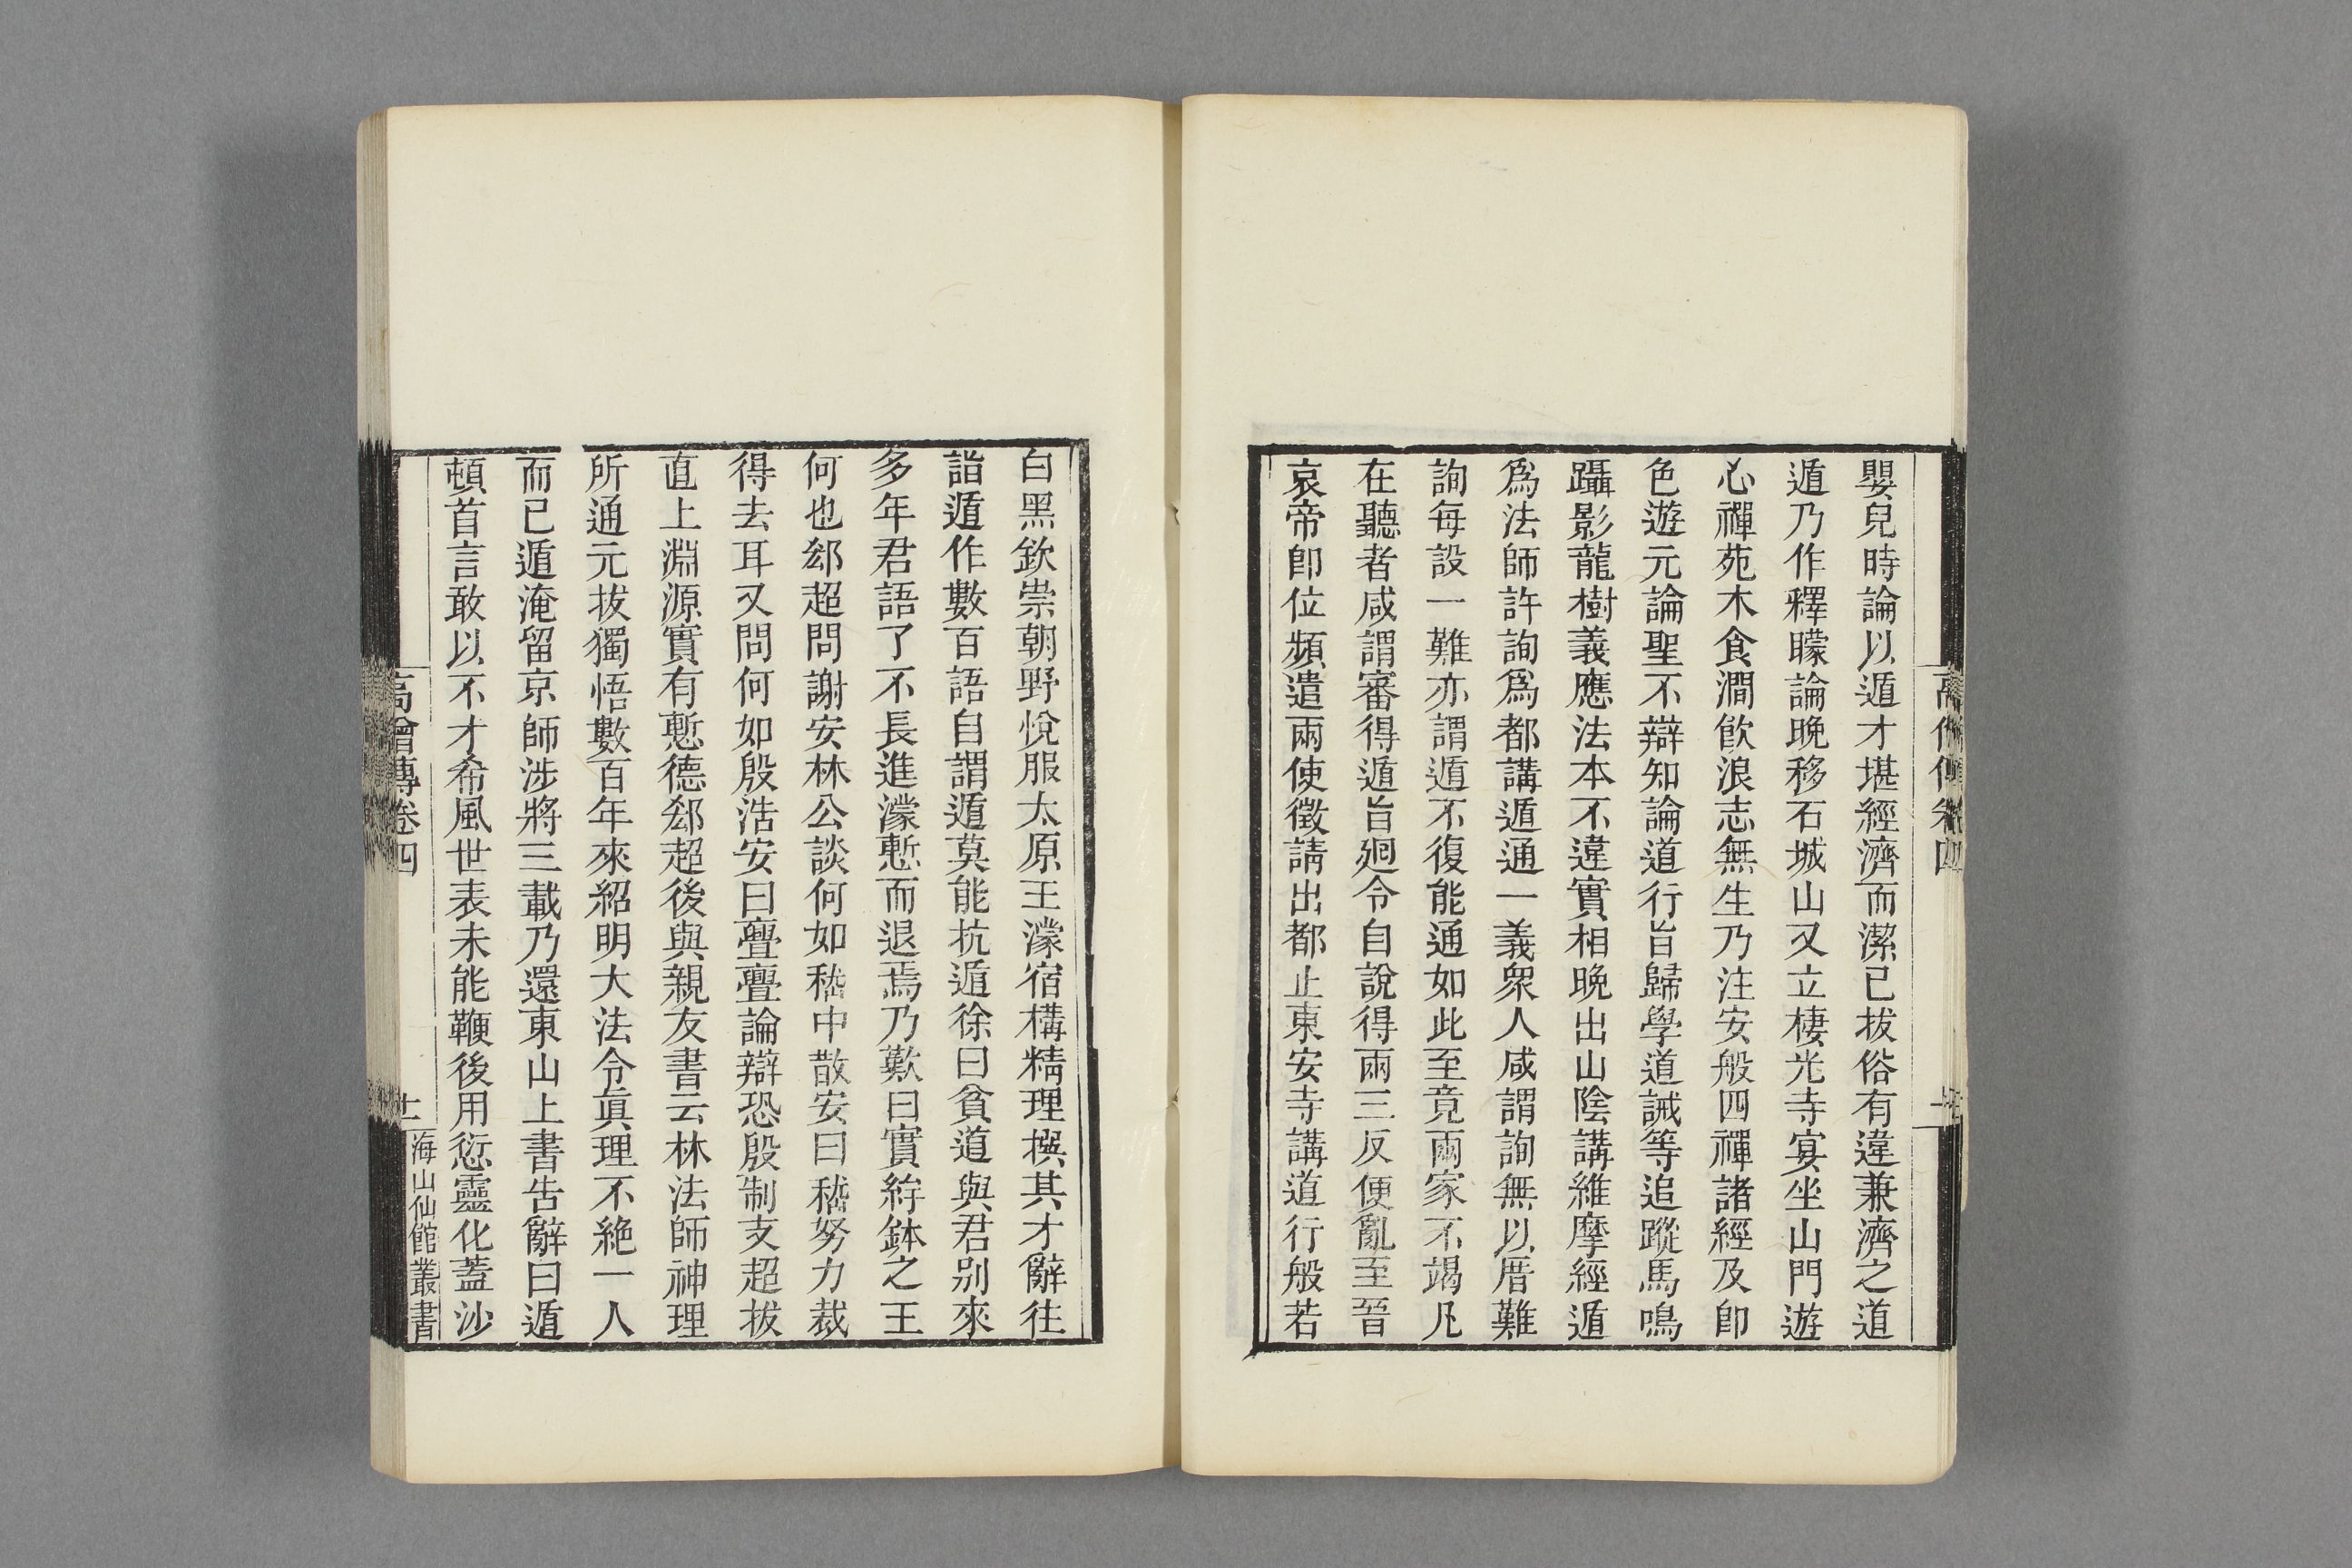 嬰兒時論以遁才堪經濟而潔已拔俗有違兼濟之道
遁乃作釋矇論晚移石城山又立棲光寺宴坐山門遊
心禪苑木食澗飲浪志無生乃注安般四禪諸經及卽
色遊元論聖不辯知論道行旨歸學道誡等追蹤馬鳴
躡影龍樹義應法本不違實相晚出山陰講維摩經遁
爲法師許詢爲都講遁通一義衆人咸謂詢無以厝難
詢每設一難亦謂遁不復能通如此至竟兩家不竭凡
在聽者咸謂審得遁旨廻令自說得兩三反便亂至晉
哀帝卽位頻遣兩使徵請出都止東安寺講道行般若
白黑欽崇朝野悅服太原王濛宿構精理撰其才辭往
詣遁作數百語自謂遁莫能抗遁徐曰貧道與君別來
多年君語了不長進濛慙而退焉乃歎曰實緇鉢之王
何也郄超問謝安林公談何如嵇中散安曰嵇努力裁
得去耳又問何如殷浩安曰亹亹論辯恐殷制支超拔
直上淵源實有慙德郄超後與親友書云林法師神理
所通元拔獨悟數百年來紹明大法令眞理不絕一人
而已遁淹留京師涉將三載乃還東山上書告辭曰遁
頓首言敢以不才希風世表未能鞭後用愆靈化蓋沙
高僧傳卷四
海山仙館叢書